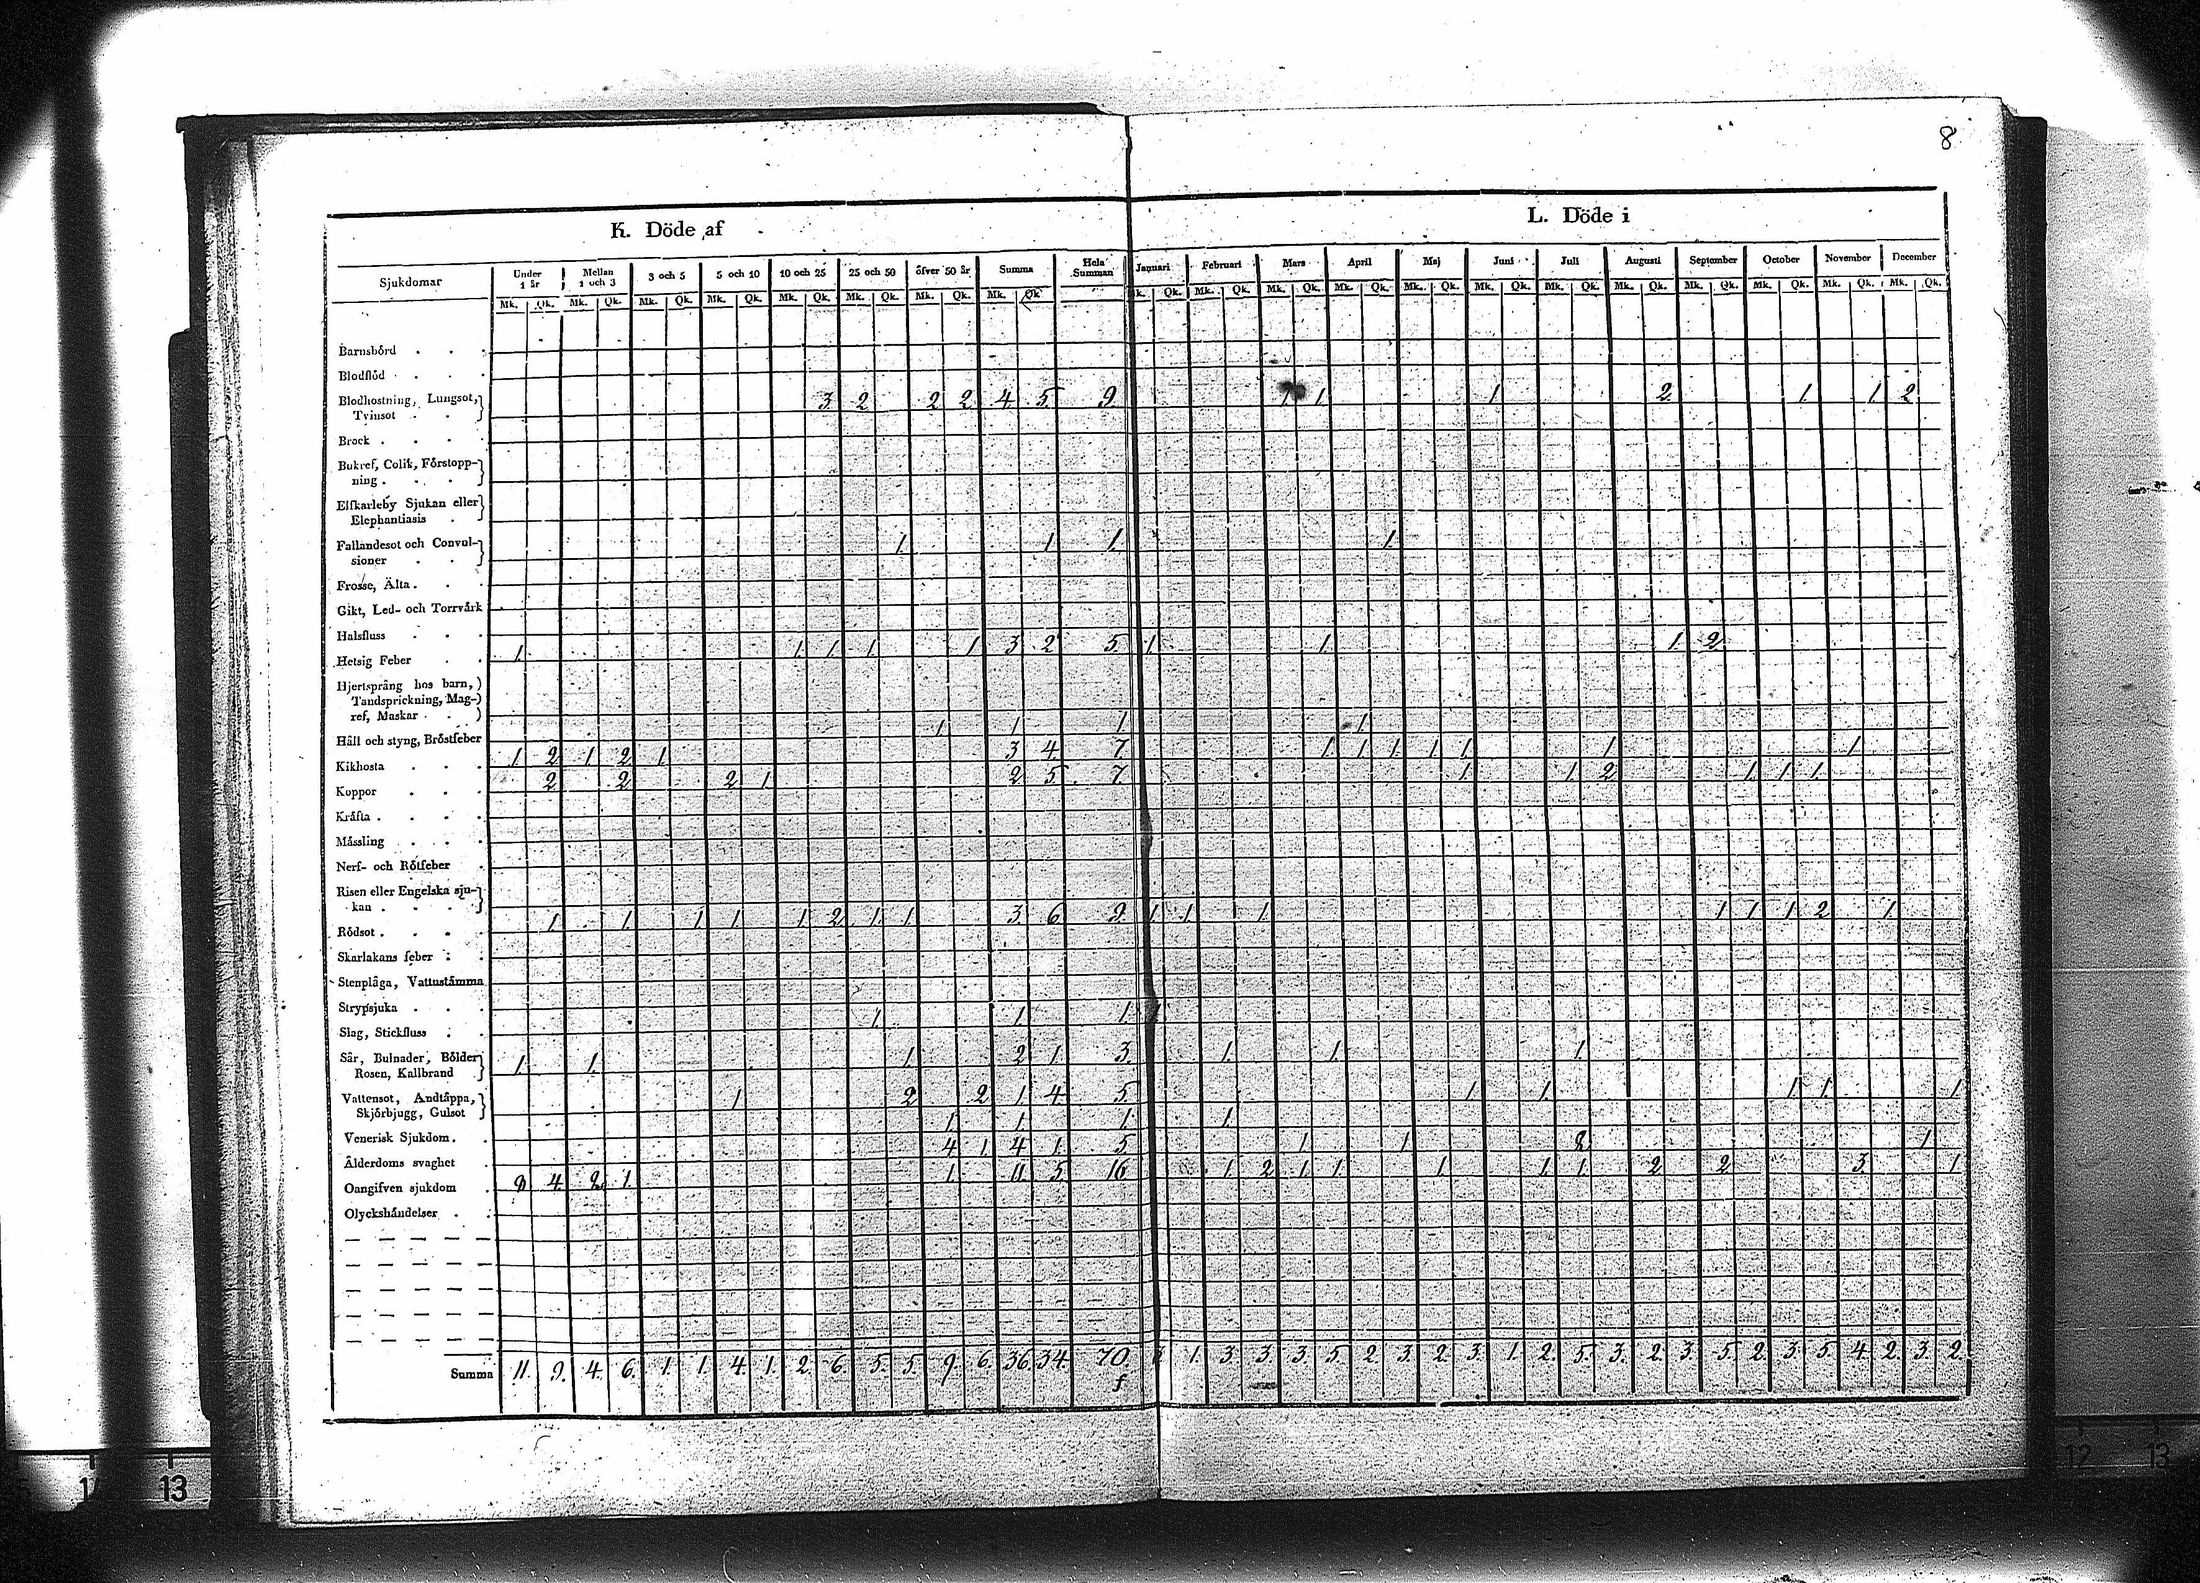 8
K. Döde af
L. Döde i
Sjukdomar Under 1 år Mellan 1 och 3 3 och 5 5 och 10 10 och 25 25 och 50 öfver 50 år Summa Hela Summan Januari Februari Mars April Maj Juni Juli Augusti September October November December
Mk. Qk. Mk. Qk. Mk. Qk. Mk. Qk. Mk. Qk. Mk. Qk. Mk. Qk. Mk. Qk. Mk. Qk. Mk. Qk. Mk. Qk. Mk. Qk. Mk. Qk. Mk. Qk. Mk. Qk. Mk. Qk. Mk. Qk. Mk. Qk. Mk. Qk. Mk. Qk.
Barnsbörd
Blodflöd
Blodhostning, Lungsot, 3. 2 2 2 4. 5. 9. 1 1. 1 2. 1. 1 2.
Tvinsot
Brock
Bukref, Colik, Förstopp-
ning
Elfkarleby Sjukan eller
Elephantiasis
Fallandesot och Convul- 1. 1 1. 1.
sioner
Frosse, Älta
Gikt, Led- och Torrvärk
Halsfluss
Hetsig Feber 1. 1. 1. 1. 1 3 2 5. 1 1. 1. 2
Hjertsprång hos barn,
Tandsprickning, Mag-
ref, Maskar
Håll och styng, Bröstfeber 1 1 1. 1.
Kikhosta 1. 2 1 2 1 3 4. 7. 1. 1. 1. 1. 1 1 1.
Koppor 2 2. 2 1 2 5. 7 1 1. 2 1. 1. 1.
Kräfta
Mässling
Nerf- och Rötfeber
Risen eller Engelska sju-
kan
Rödsot 1. 1 1 1. 1. 2. 1. 1. 3. 6. 9. 1. 1. 1. 1 1. 1 2 1.
Skarlakans feber
Stenplåga, Vattustämma
Strypsjuka
Slag, Stickfluss 1. 1. 1.
Sår, Bulnader, Bölder 1. 1. 1. 2 1. 3. 1. 1. 1.
Rosen, Kallbrand
Vattensot, Andtäppa, 1 2 2 1. 4. 5. 1 1. 1. 1. 1
Skjörbjugg, Gulsot
Venerisk Sjukdom 1. 1. 1 1.
Ålderdoms svaghet 4 1. 4. 1. 5. 1. 1. 2 1.
Oangifven sjukdom 4. 2. 1. 1. 11. 5. 16 1. 2 1. 1. 1 1. 1. 2 2 3. 1
Olyckshändelser
Summa 11. 9. 4. 6. 1. 1. 4. 1. 2. 6. 5. 5. 9. 6. 36. 34. 70. 1. 3. 3. 3. 5. 2. 3. 2. 3. 1. 2. 5. 3. 2. 3. 5. 2. 3. 5. 4. 2. 3. 2.
13
12 13